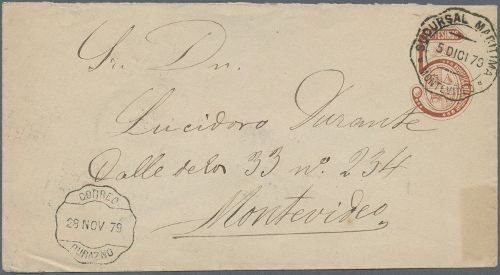 SUCURSAL MARITIMA
5 DICI 79
MONTEVIDEO
Sr. Dn.
Lucidoro Durante
Calle de los 33 nº. 234
Montevideo
CORREO
28 NOV 79
DURAZNO